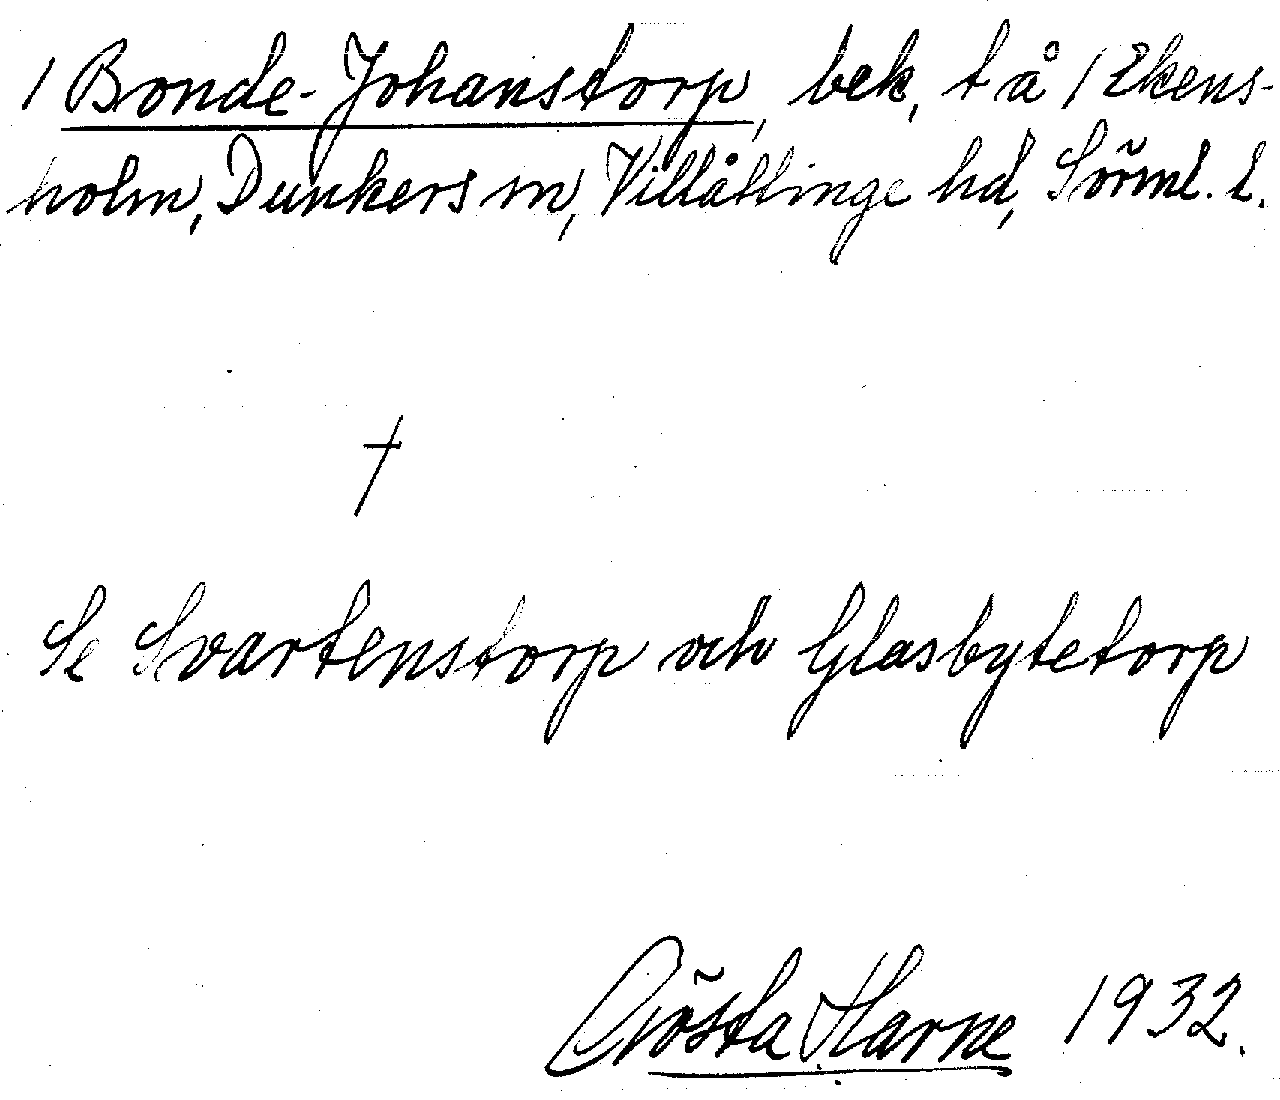 / Bonde-Johanstorp, bek, t å / Ekens-
holm, Dunkers sn, Villåttinge hd, Sörml. l.
†
Se Svartenstorp och Glasbytetorp
Gösta Harne 1932.